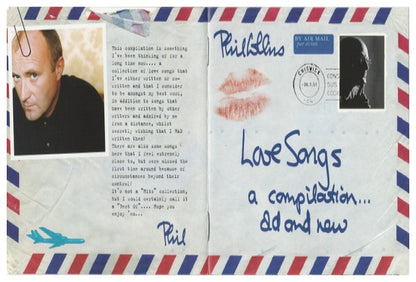 This compilation is something
I've been thinking of for a
long time now.... a
collection of love songs that
I've either written or co-
written and that I consider
to be amongst my best work,
in addition to songs that
have been written by other
writers and admired by me
from a distance, whilst
secretly wishing that I HAD
written them!
There are also some songs
here that I feel extremely
close to, but were missed the
first time around because of
circumstances beyond their
control!
It's not a "Hits" collection,
but I could certainly call it
a "Best Of".... Hope you
enjoy 'em...
Phil
Phil Collins
BY AIR MAIL
par avion
CHISWICK
Love Songs
a compilation...
old and new